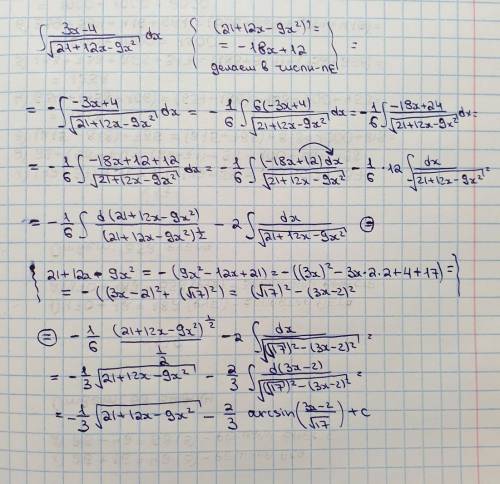 ∫ (3x-4)/√(21+12x-9x²) dx { (21+12x-9x²)' =
= -18x+12
делаем в числи-ле } =
= -∫ (-3x+4)/√(21+12x-9x²) dx = -1/6 ∫ 6(-3x+4)/√(21+12x-9x²) dx = -1/6 ∫ (-18x+24)/√(21+12x-9x²) dx =
= -1/6 ∫ (-18x+12+12)/√(21+12x-9x²) dx = -1/6 ∫ (-18x+12)dx/√(21+12x-9x²) - 1/6 · 12 ∫ dx/√(21+12x-9x²) =
= -1/6 ∫ d(21+12x-9x²)/(21+12x-9x²)^½ - 2 ∫ dx/√(21+12x-9x²) ⊜
{ 21+12x-9x² = -(9x²-12x+21) = -((3x)²-3x·2·2+4+17) =
= -((3x-2)²+(√17)²) = (√17)²-(3x-2)² }
⊜ -1/6 (21+12x-9x²)^½/½ - 2 ∫ dx/√((√17)²-(3x-2)²) =
= -1/3 √(21+12x-9x²) - 2/3 ∫ d(3x-2)/√((√17)²-(3x-2)²) =
= -1/3 √(21+12x-9x²) - 2/3 arcsin((3x-2)/√17) + c